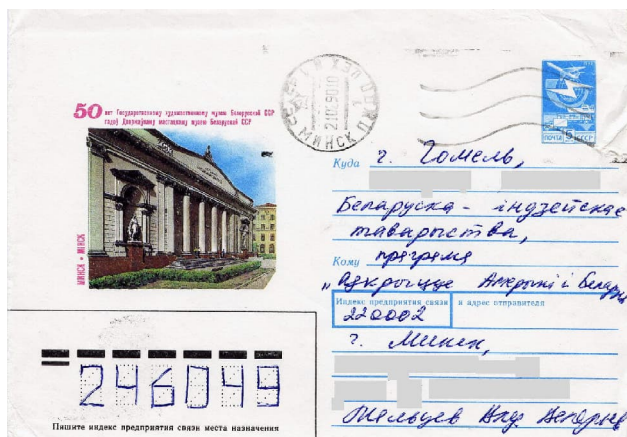 50 лет Государственному художественному музею Белорусской ССР
гадоў Дзяржаўнаму мастацкаму музею Беларускай ССР
МИНСК • МІНСК
МИНСК
21 10 90 10
ПОЧТА СССР
Куда г. Гомель,
Беларуска - індзейскае
таварыства,
Кому праграма
"Адкрыццё Амерыкі і Беларусь
Индекс предприятия связи и адрес отправителя
220002
г. Минск,
246049
Пишите индекс предприятия связи места назначения